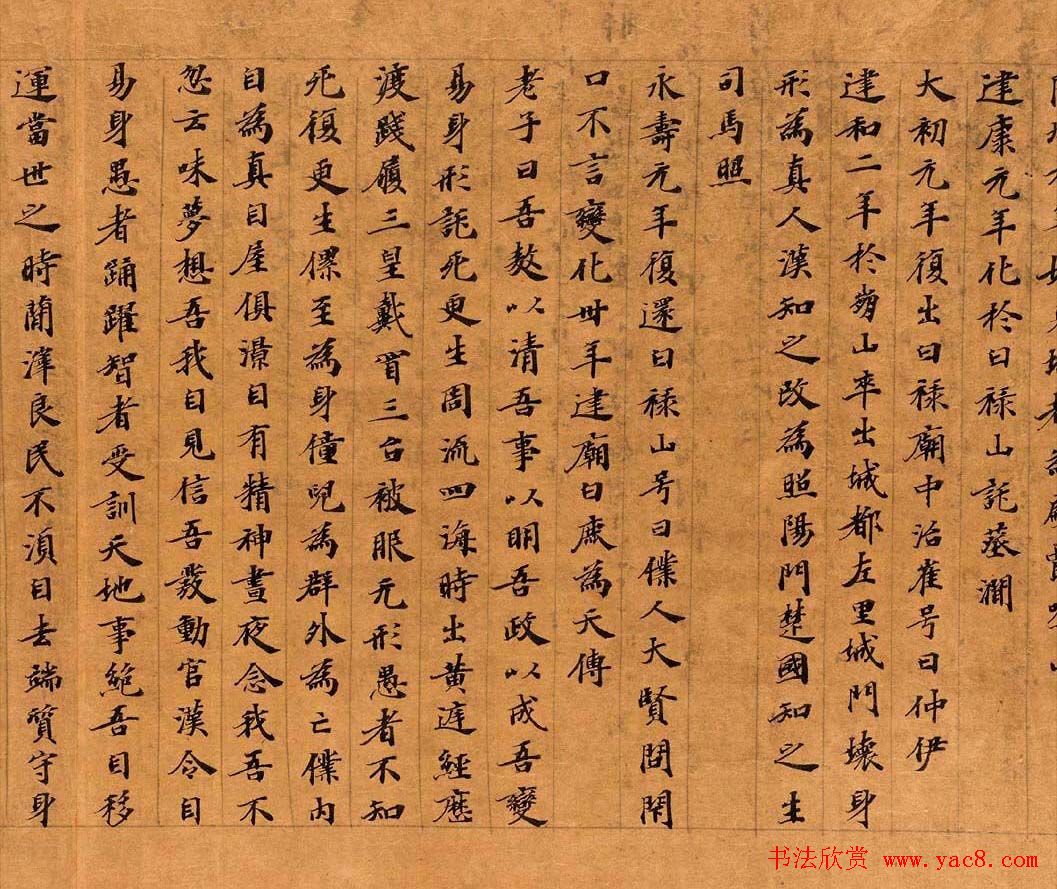 建康元年化於曰祿山託葬澗
大初元年復出曰祿廟中治崔号曰仲伊
建和二年於崩山卒出城都左里城門壞身
形為真人漢知之改為照陽門楚國知之生
司馬照
永壽元年復還曰祿山号曰僕人大賢閉閇
口不言變化卅年建廟曰鹿為天傳
老子曰吾敖以清吾事以明吾政以成吾變
易身形託死更生周流四海時出黃庭經歷
渡踐履三皇戴冒三台被服元形愚者不知
死復更生僇至為身僮兒為群外為亡僕內
自為真目屋俱澋目有精神晝夜念我吾不
忽云味夢想吾我自見信吾發動官漢令自
易身愚者踊躍智者受訓天地事絕吾自移
運當世之時簡滓良民不湏自去端質守身
书法欣赏 www.yac8.com